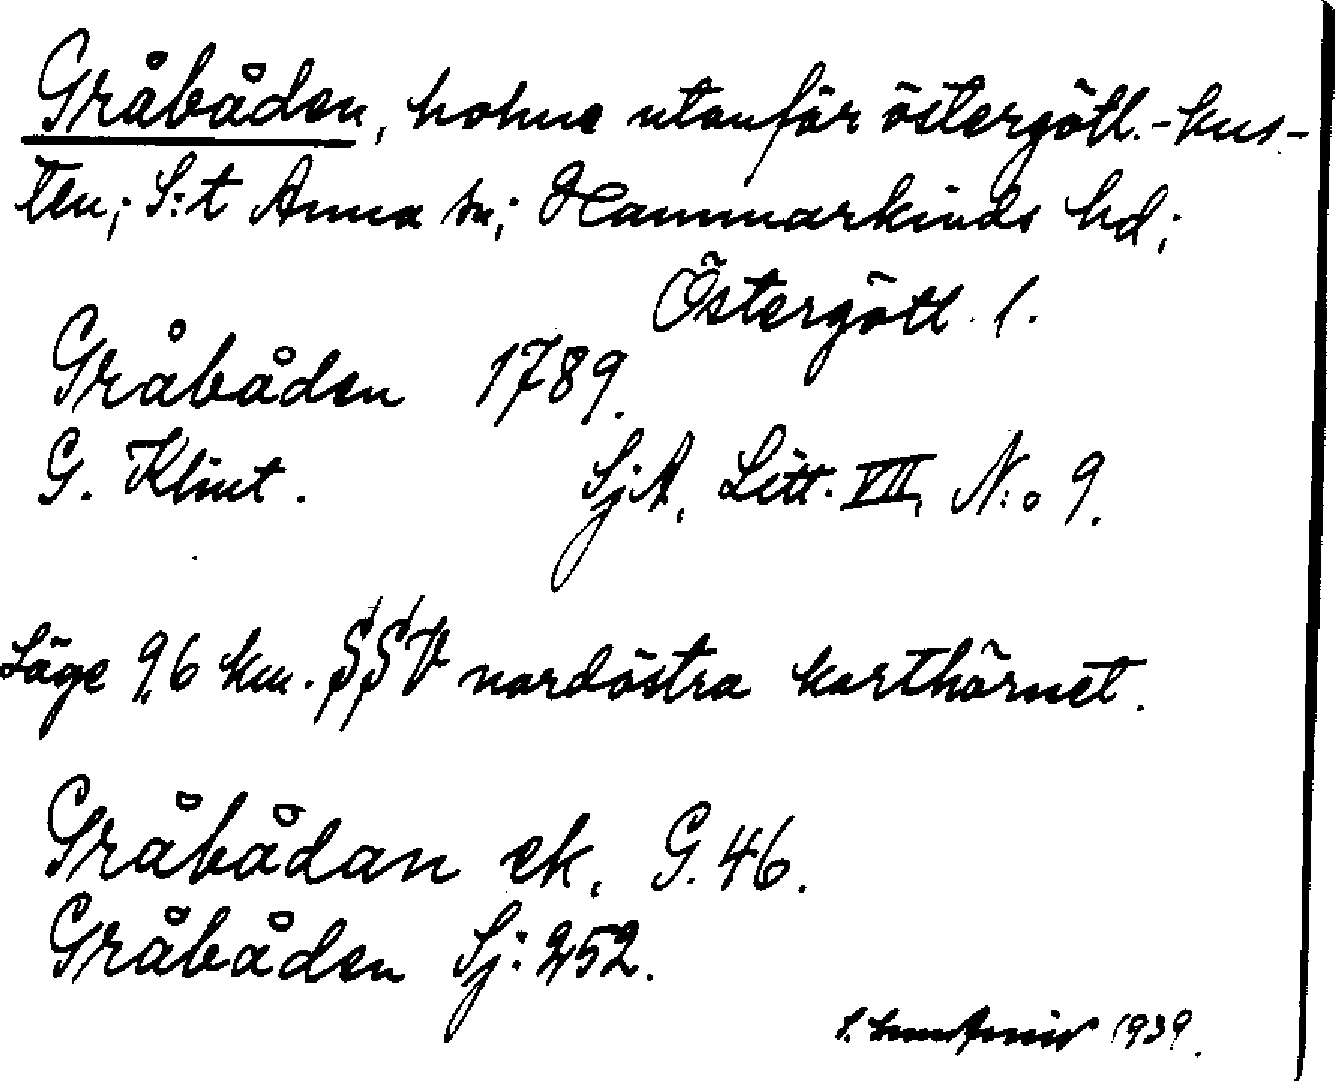 Gråbåden, holme utanför östergötl.-kus-
ten; S:t Anna sn; Hammarkinds hd;
Östergötl. l.
Gråbåden 1789.
G. Klint. SjA, Litt. VII, N:o 9.
Läge 9,6 km. SSV nordöstra karthörnet.
Gråbådan ek. G. 46.
Gråbåden Sj: 252.
S. 1939.